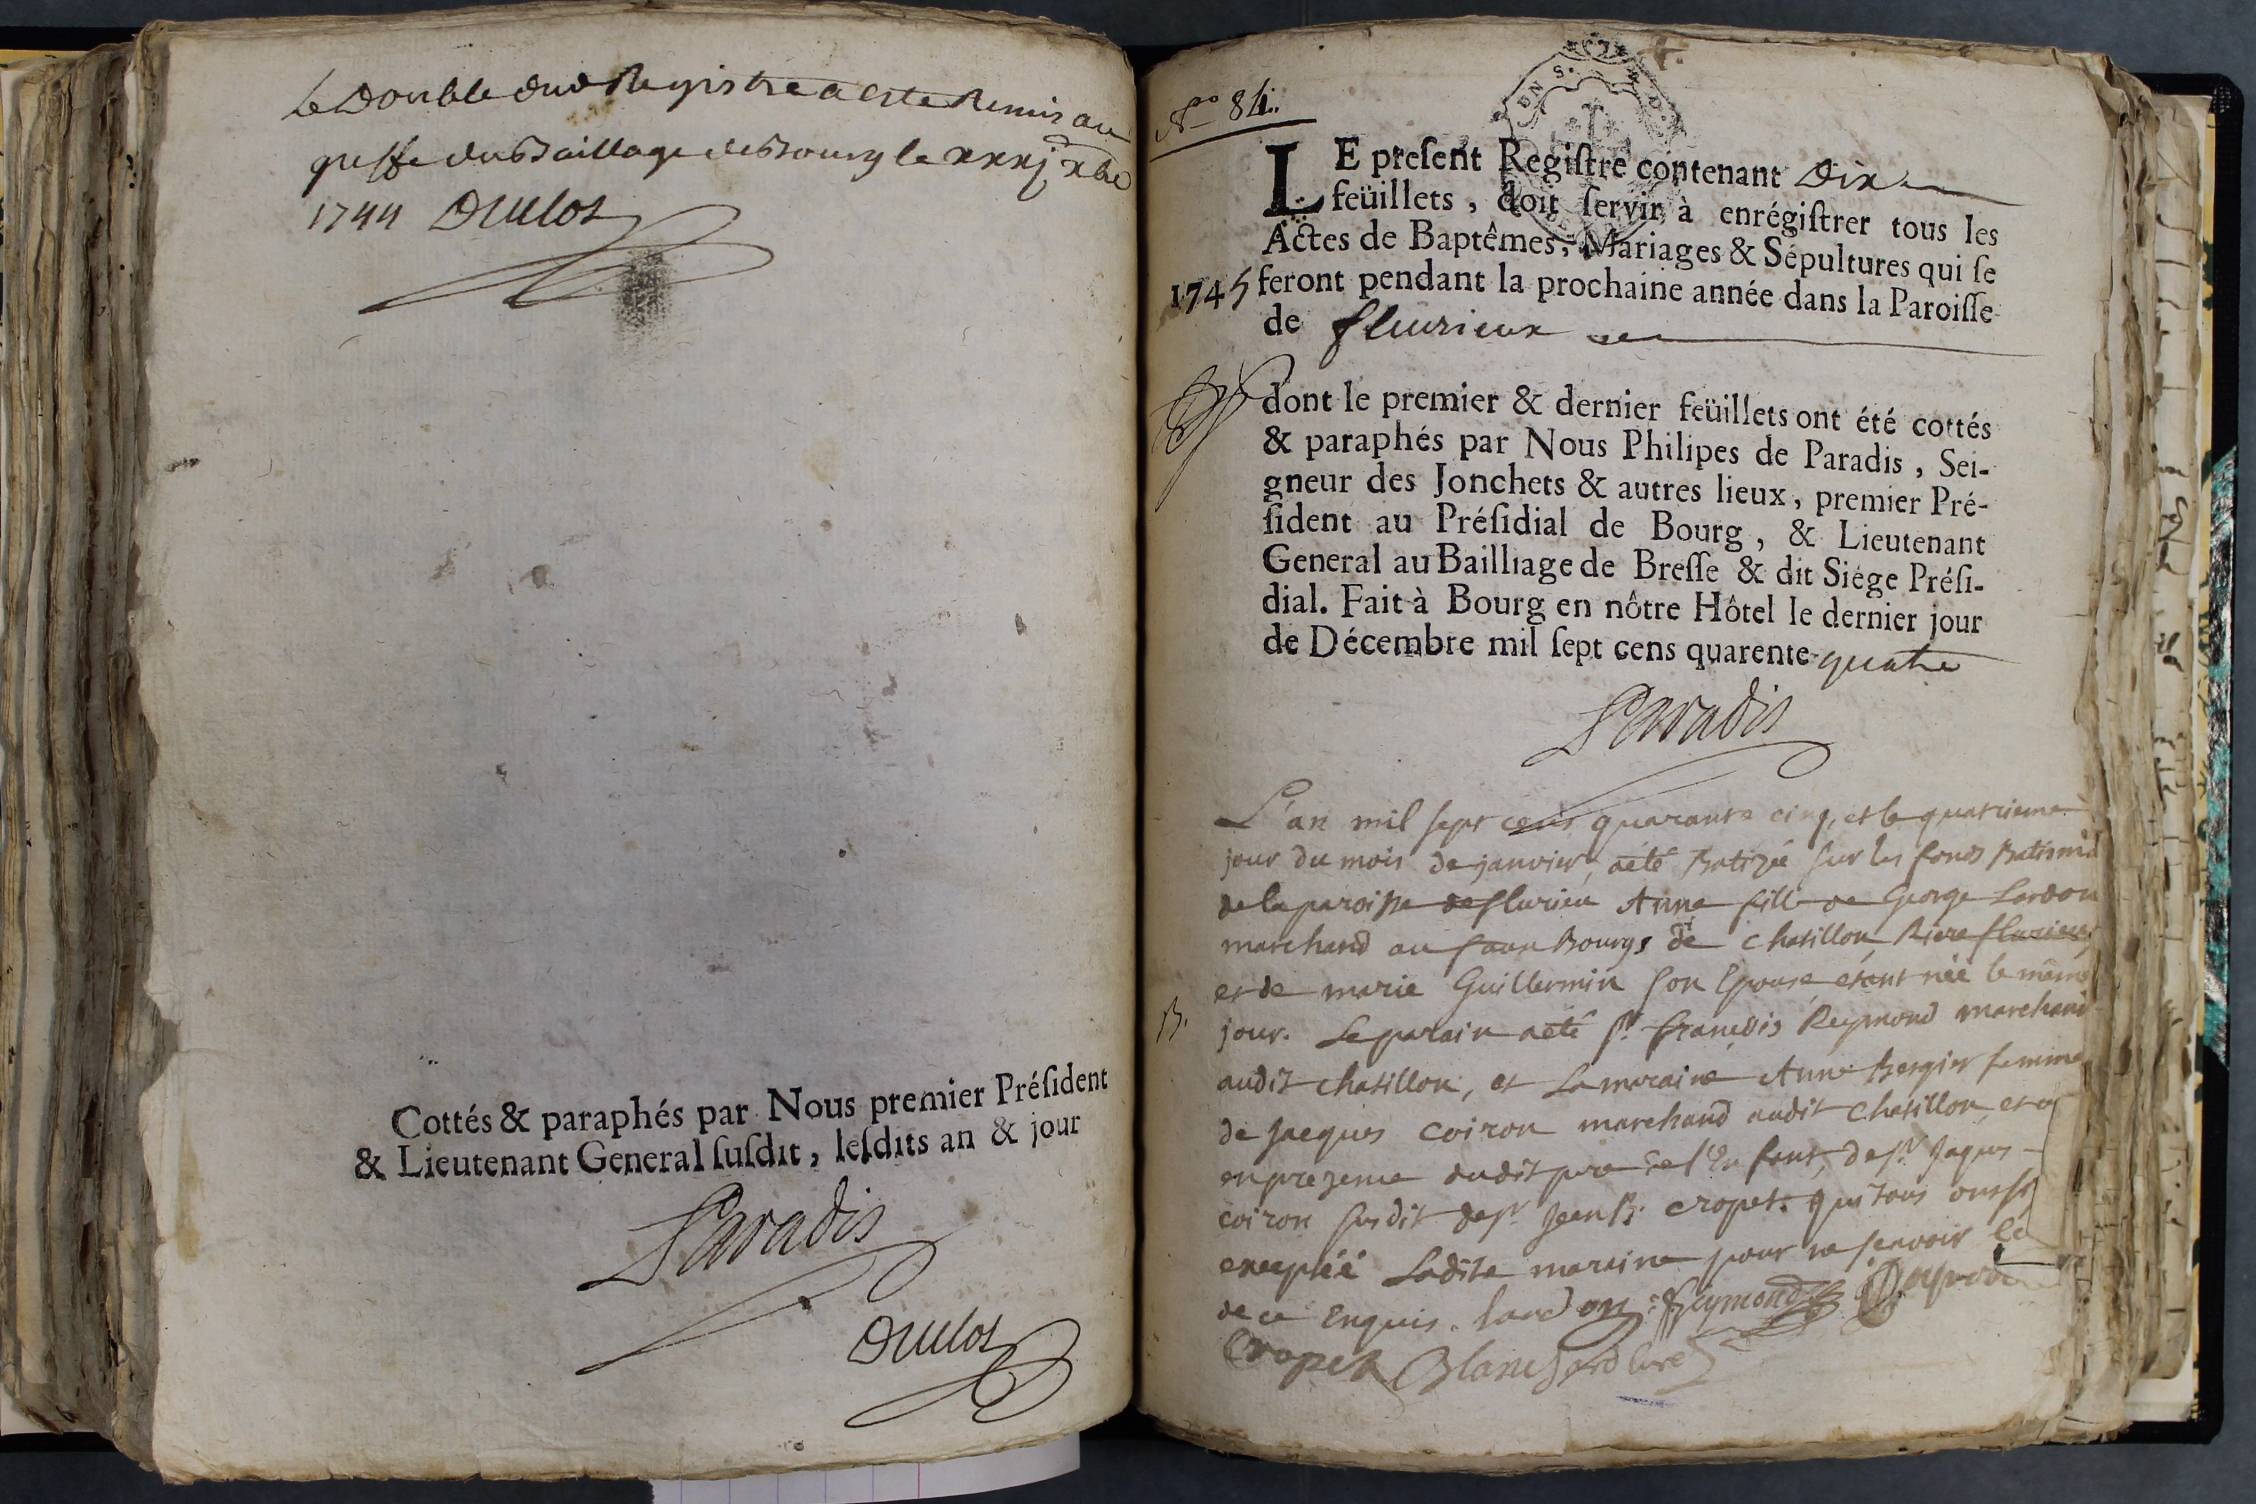 Le Double dud Registre a este Remis au
greffe du Baillage de Bourg le xxxj xbre
1744 Duclos
Cottés & paraphés par Nous premier Préſident
& Lieutenant General ſuſdit, leſdits an & jour
Paradis
Duclos
N.º 84.
LE preſent Regiſtre contenant Dix
feüillets, doit ſervir à enrégiſtrer tous les
Actes de Baptêmes, Mariages & Sépultures qui ſe
1745 feront pendant la prochaine année dans la Paroiſſe
de fleurieux
dont le premier & dernier feüillets ont été cottés
& paraphés par Nous Philipes de Paradis, Sei-
gneur des Jonchets & autres lieux, premier Pré-
ſident au Préſidial de Bourg, & Lieutenant
General au Bailliage de Breſſe & dit Siége Préſi-
dial. Fait à Bourg en nôtre Hôtel le dernier jour
de Décembre mil ſept cens quarente quatre
Paradis
L'an mil sept cens quarante cinq, et le quatrieme
jour du mois de janvier, aété Batizée sur les fonds
de la paroisse de flurieu Anne fille de George Lardon
marchand au faux Bourgs de chatillon Riere flurieux
et de marie Guillermin son Epouse étant née le même
B. jour. Le parain aeté sr. françois Reymond marchand
audit chatillon, et La maraine Anne Bergier femme
de Jacques coiron marchand audit chatillon et a
en prezence dudit pere de l'Enfant, de sr. Jaques
coiron susdit de sr. Jean B. cropet. Qui tous ont
exceptéé Ladite maraine pour ne scavoir
de ce Enquis. Lardon Reymond
Cropet Blanchard curé